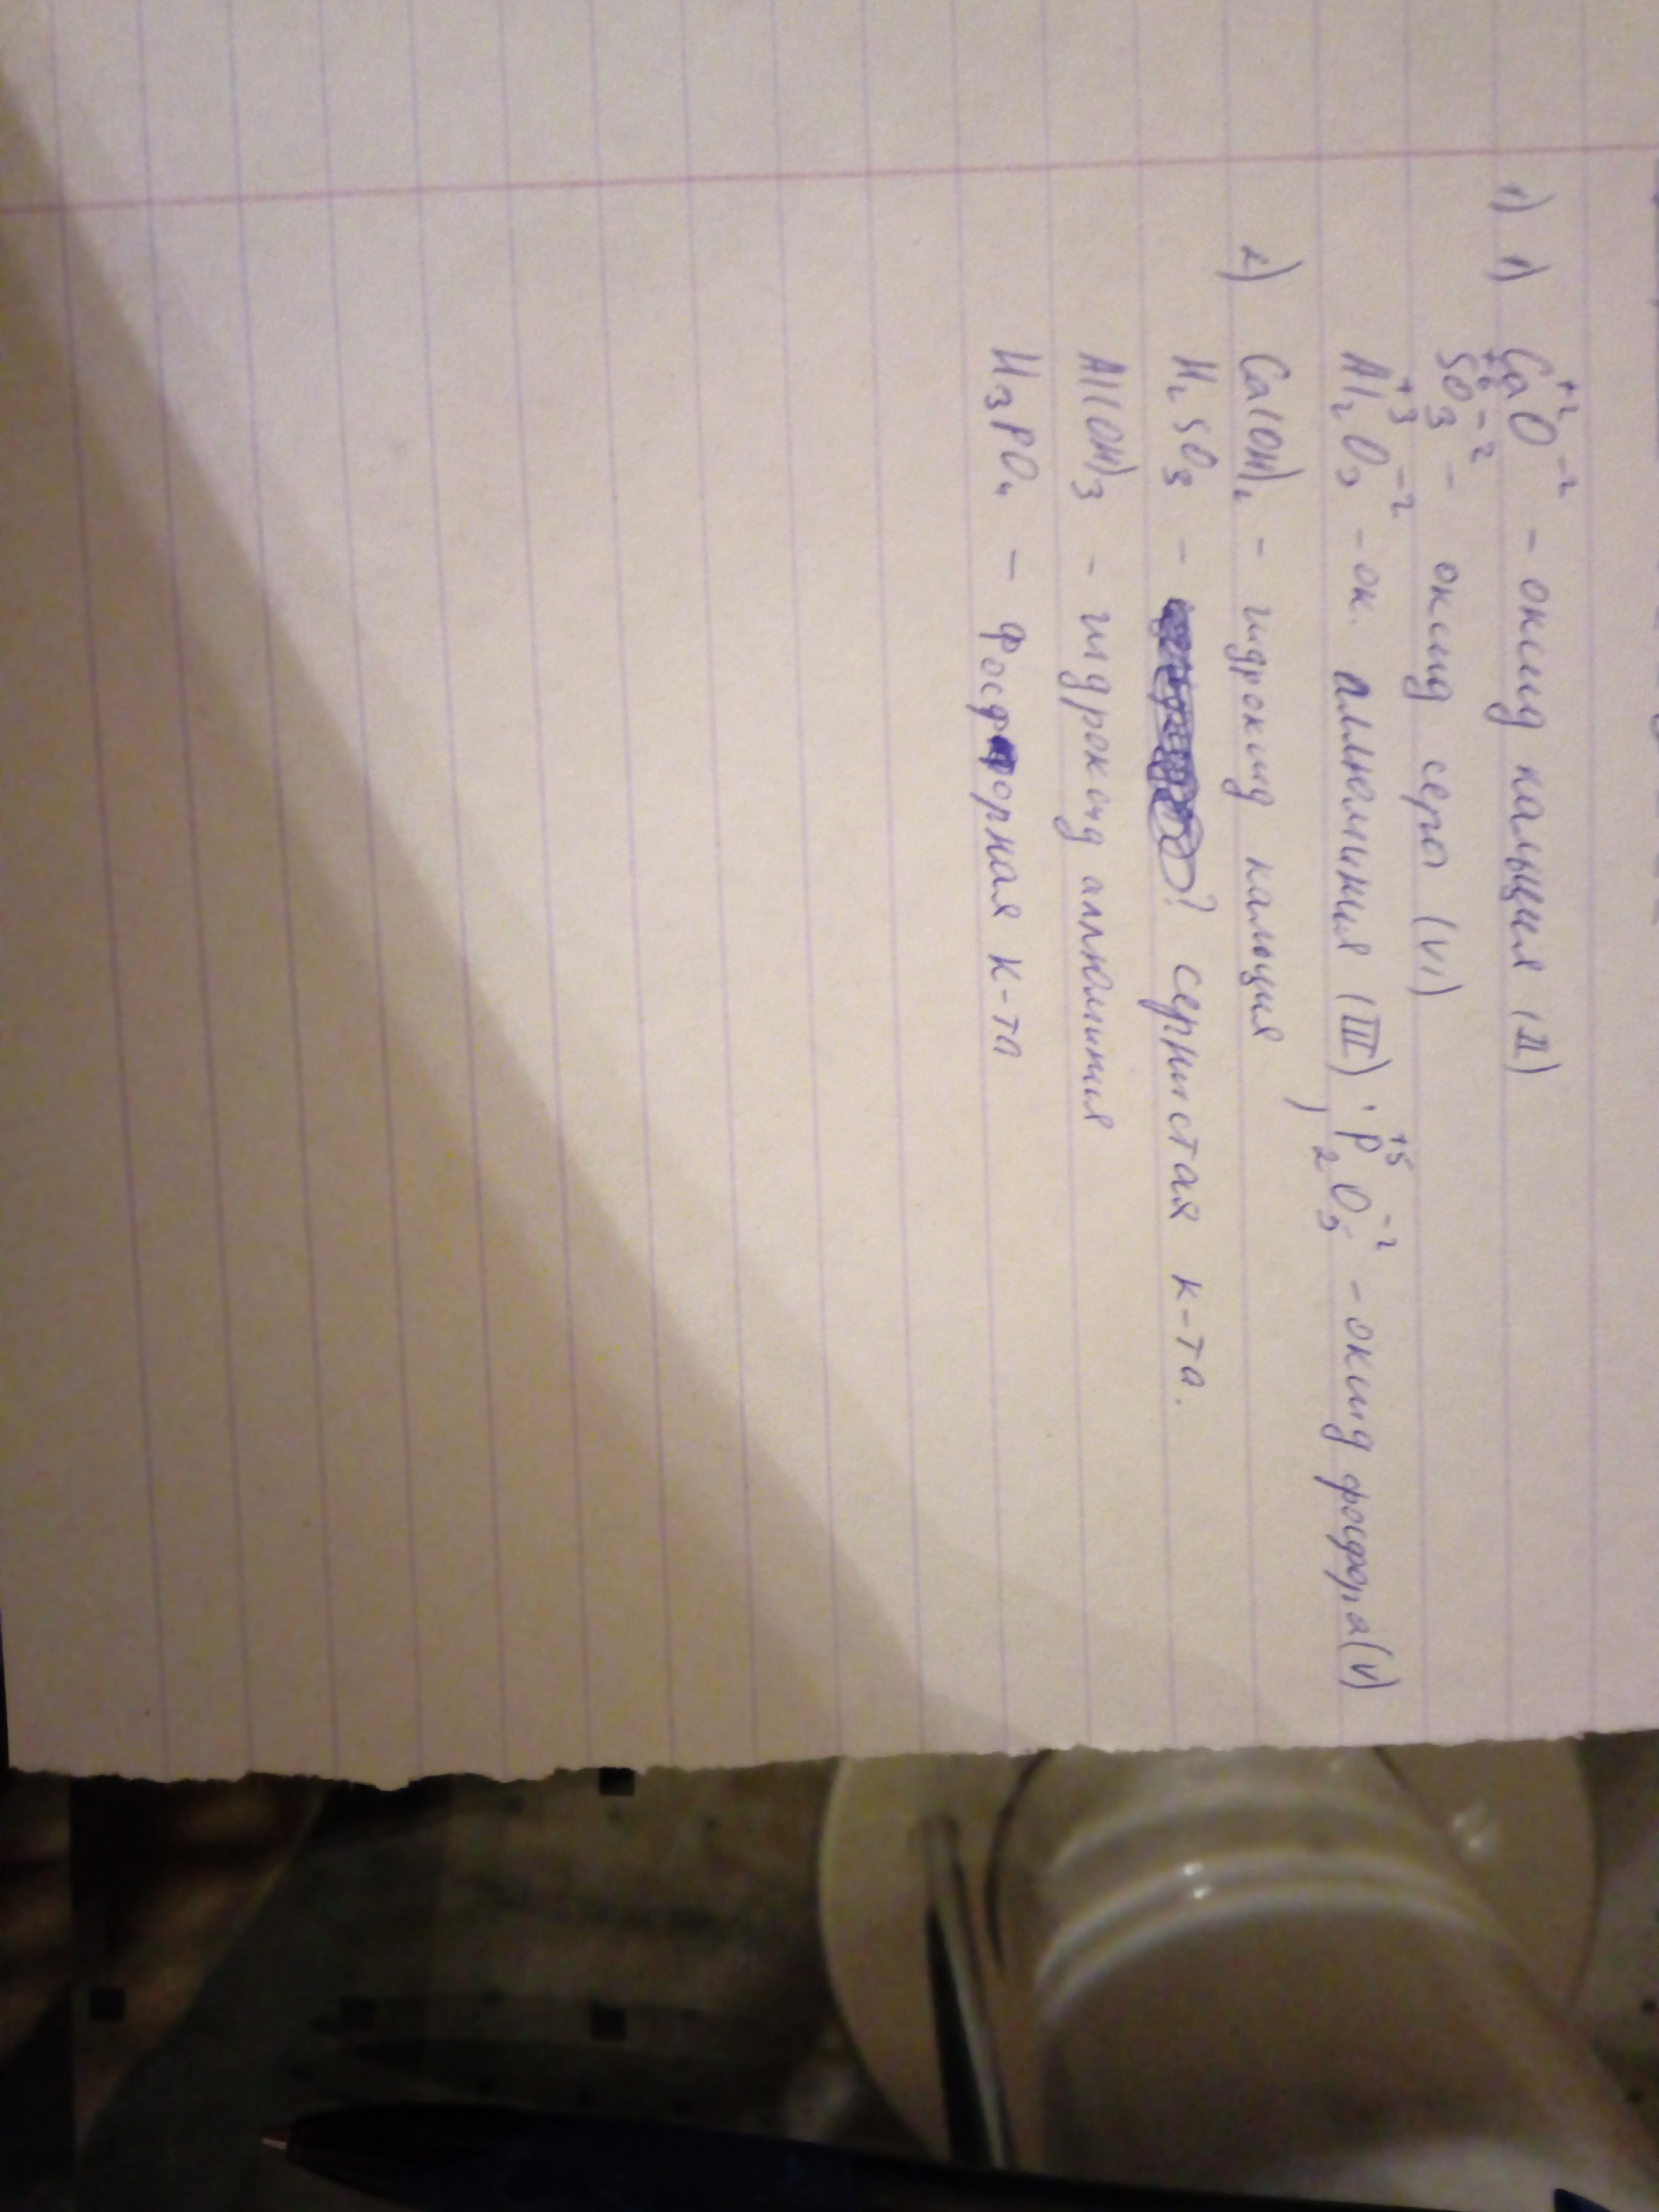 1) 1) Ca⁺²O⁻² - оксид кальция (II)
S⁺⁶O₃⁻² - оксид серы (VI)
Al₂⁺³O₃⁻² - ок. аллюминия (III); P₂⁺⁵O₅⁻² - оксид фосфора (V)
2) Ca(OH)₂ - гидроксид кальция
H₂SO₃ - ? сернистая к-та.
Al(OH)₃ - гидроксид аллюминия
H₃PO₄ - Фосфорная к-та